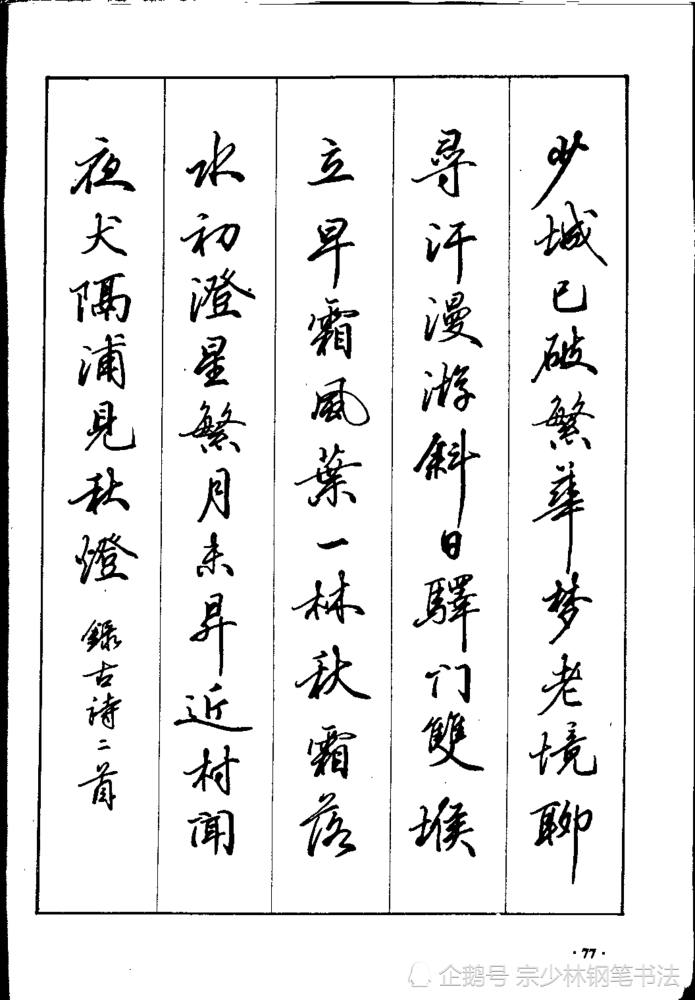 少城已破繁華梦老境聊
尋汗漫游斜日驛门雙堠
立早霜風葉一林秋霜落
水初澄星繁月未昇近村聞
夜犬隔浦見秋燈
錄古詩二首
·77·
企鹅号 宗少林钢笔书法